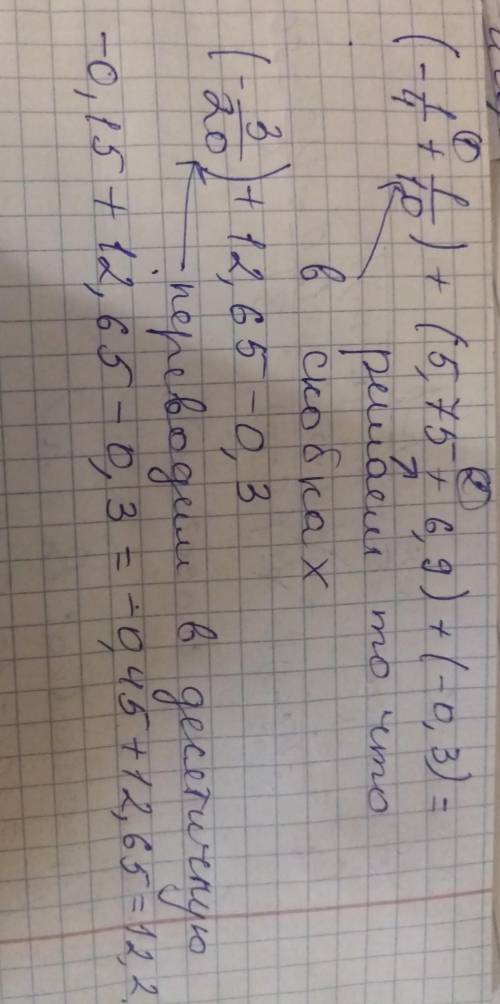 ① ②
(-1/4 + 1/10) + (5,75 + 6,9) + (-0,3) =
решаем то что
в скобках
(-3/20) + 12,65 - 0,3
переводим в десятичную
-0,15 + 12,65 - 0,3 = -0,45 + 12,65 = 12,2.